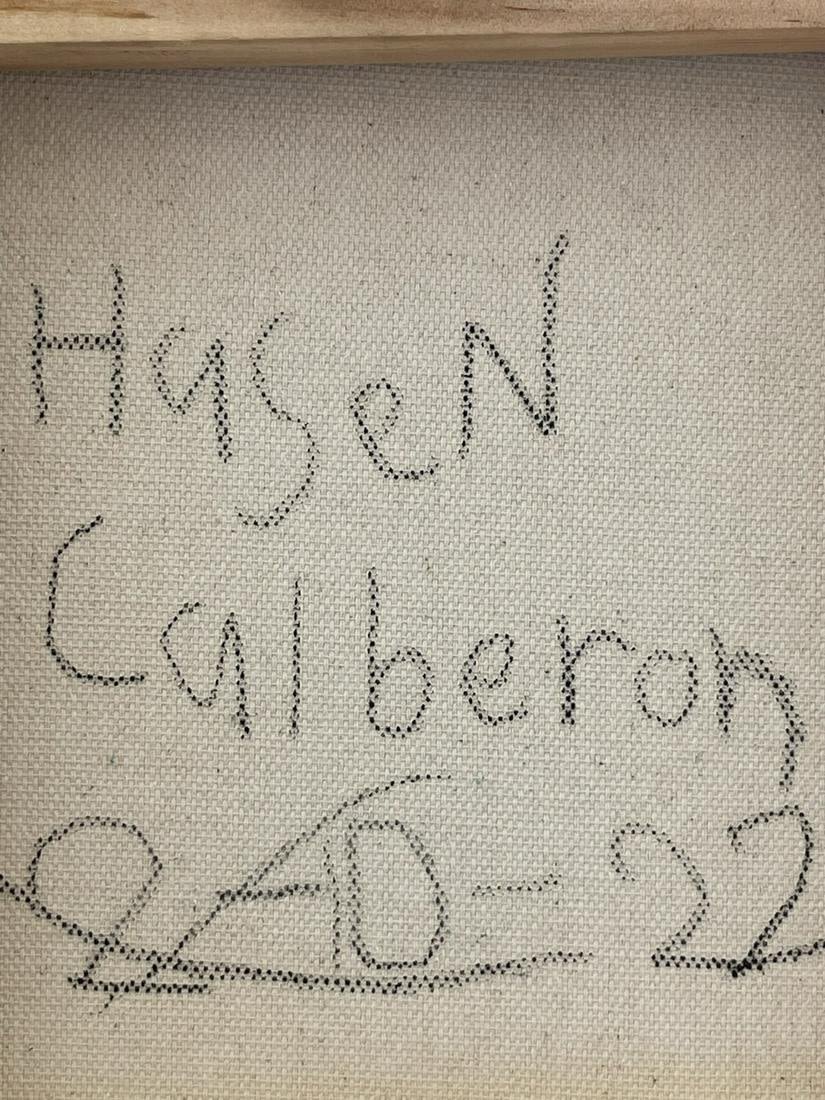 HaseN
Calberon
2-10-22